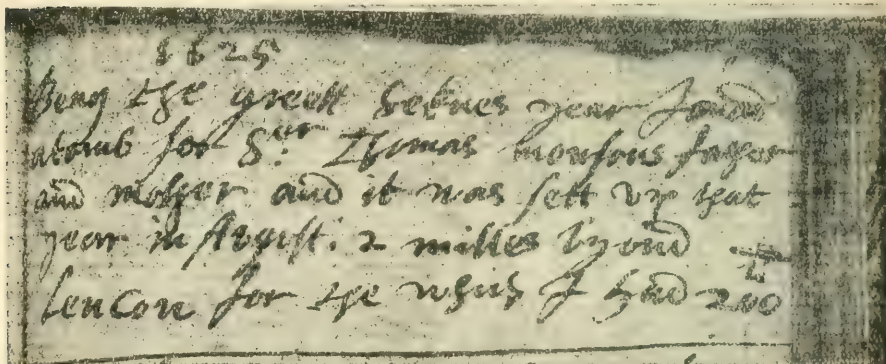 1625
Beng the greett seknes year I mad
atomb for Sur Thomas monsons father
and mother and it was sett up that
year in August. 2 milles byond
lencon for the which I had 200 ll